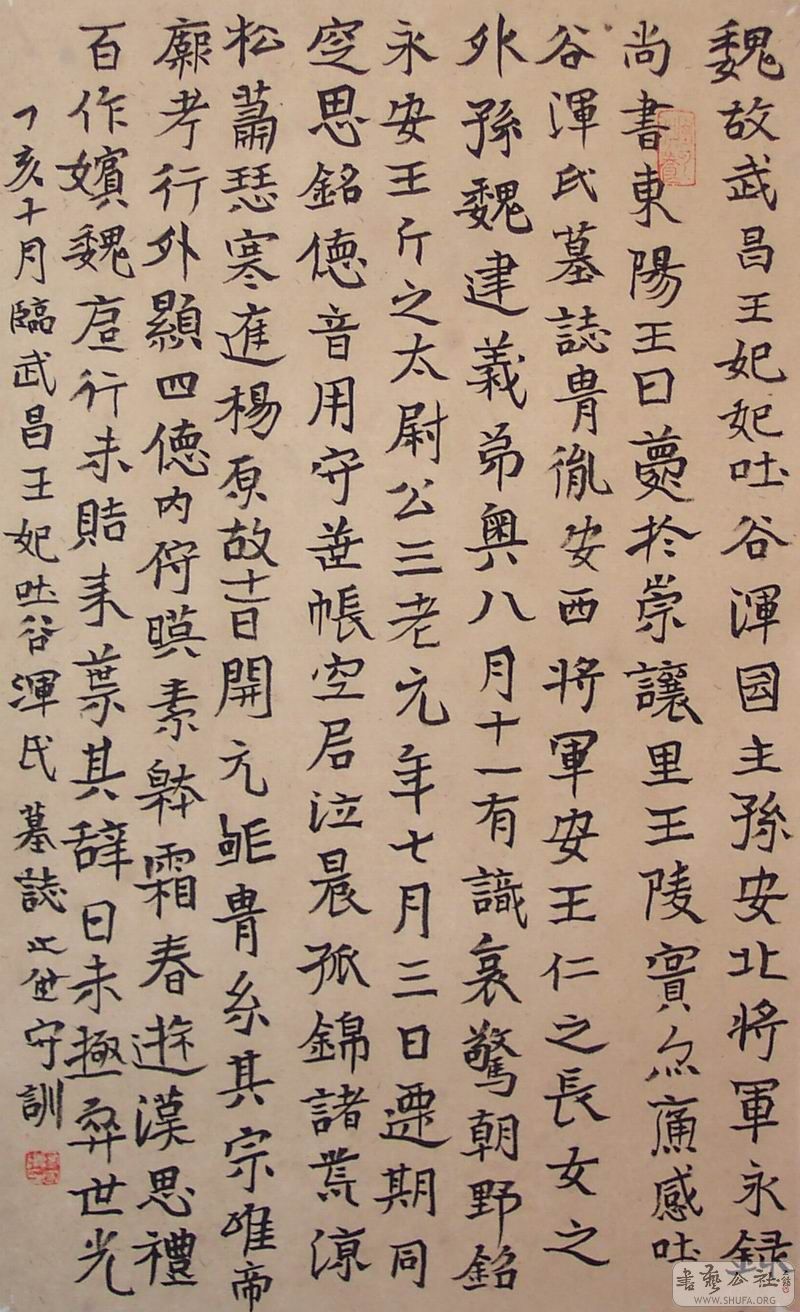 魏故武昌王妃妃吐谷渾國主孫安北將軍永録
尚書東陽王曰薨於崇讓里王陵賓尒痛感吐
谷渾氏墓誌胄胤安西將軍安王仁之長女之
外孫魏建義弟奥八月十一有識哀驚朝野銘
永安王斤之太尉公三老元年七月三日遷期同
空思銘德音用守並帳空居泣晨孤錦諸荒涼
松蕭瑟寒進楊原故十一日開元胄系其宗唯帝
考行外顯四德内素霜春遊漢思禮
百作嬪魏行未其辞曰未弈世光
丁亥十月臨武昌王妃吐谷渾氏墓誌守訓
書藝公社
WWW.SHUFA.ORG